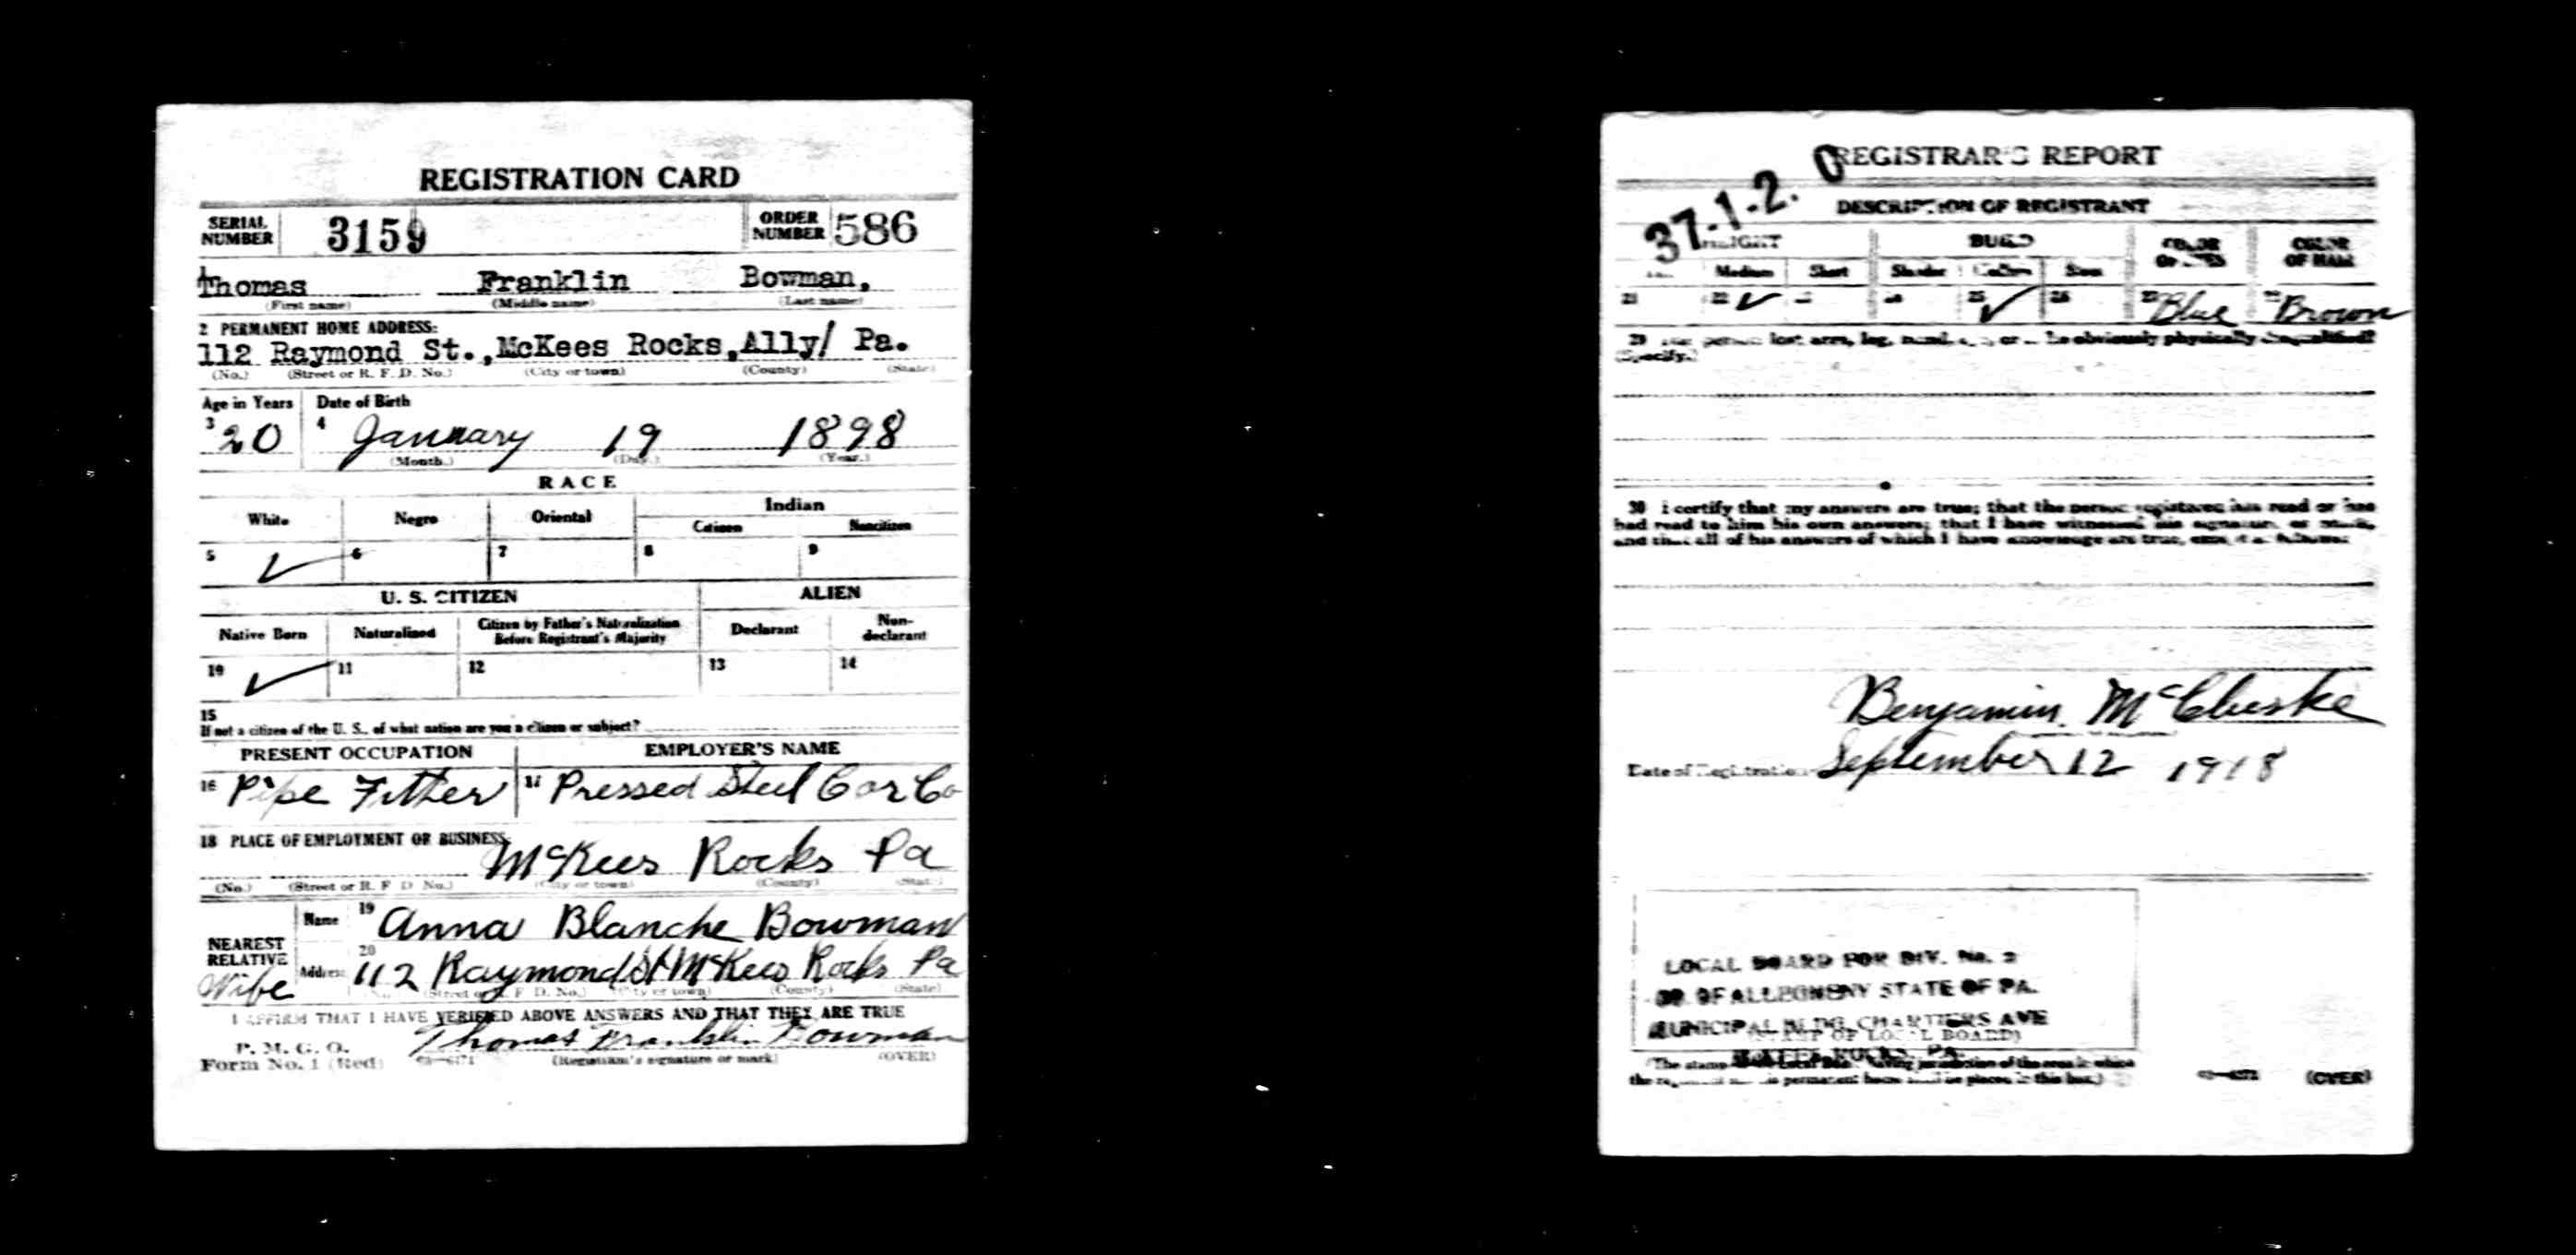 REGISTRATION CARD
SERIAL NUMBER 3159 ORDER NUMBER 586
Thomas Franklin Bowman,
(First name) (Middle name) (Last name)
2 PERMANENT HOME ADDRESS:
112 Raymond St., McKees Rocks, Ally/ Pa.
(No.) (Street or R. F. D. No.) (City or town) (County) (State)
Age in Years Date of Birth
3 20 4 January 19 1898
(Month.) (Day.) (Year.)
RACE
White Negro Oriental Indian
Citizen Noncitizen
5 ✓ 6 7 8 9
U. S. CITIZEN ALIEN
Native Born Naturalized Citizen by Father's Naturalization Before Registrant's Majority Declarant Non-declarant
10 ✓ 11 12 13 14
15
If not a citizen of the U. S., of what nation are you a citizen or subject?
PRESENT OCCUPATION EMPLOYER'S NAME
16 Pipe Fitter 17 Pressed Steel Car Co
18 PLACE OF EMPLOYMENT OR BUSINESS:
McKees Rocks Pa
(No.) (Street or R. F. D. No.) (City or town) (County) (State)
NEAREST RELATIVE Name 19 Anna Blanche Bowman
Wife Address 20 112 Raymond St McKees Rocks Pa
(Street or R. F. D. No.) (City or town) (County) (State)
I AFFIRM THAT I HAVE VERIFIED ABOVE ANSWERS AND THAT THEY ARE TRUE
Thomas Franklin Bowman
P. M. G. O.
Form No. 1 (Red) (Registrant's signature or mark) (OVER)
REGISTRAR'S REPORT
37-1-2. C
DESCRIPTION OF REGISTRANT
HEIGHT BUILD COLOR OF EYES COLOR OF HAIR
Medium Short Slender Medium Stout
21 22 ✓ 25 ✓ 26 27 Blue Brown
29 person lost arm, leg, hand, or be obviously physically disqualified?
(Specify.)
30 I certify that my answers are true; that the person registered has read or has
had read to him his own answers; that I have witnessed his signature or mark,
and that all of his answers of which I have knowledge are true, except as follows:
Benjamin McCluske
Date of Registration September 12 1918
LOCAL BOARD FOR DIV. No. 2
CO. OF ALLEGHENY STATE OF PA.
MUNICIPAL BLDG. CHARTIERS AVE
(STAMP OF LOCAL BOARD)
McKEES ROCKS, PA.
(The stamp of the Local Board having jurisdiction of the area in which
the registrant has his permanent home shall be placed in this box.) (OVER)